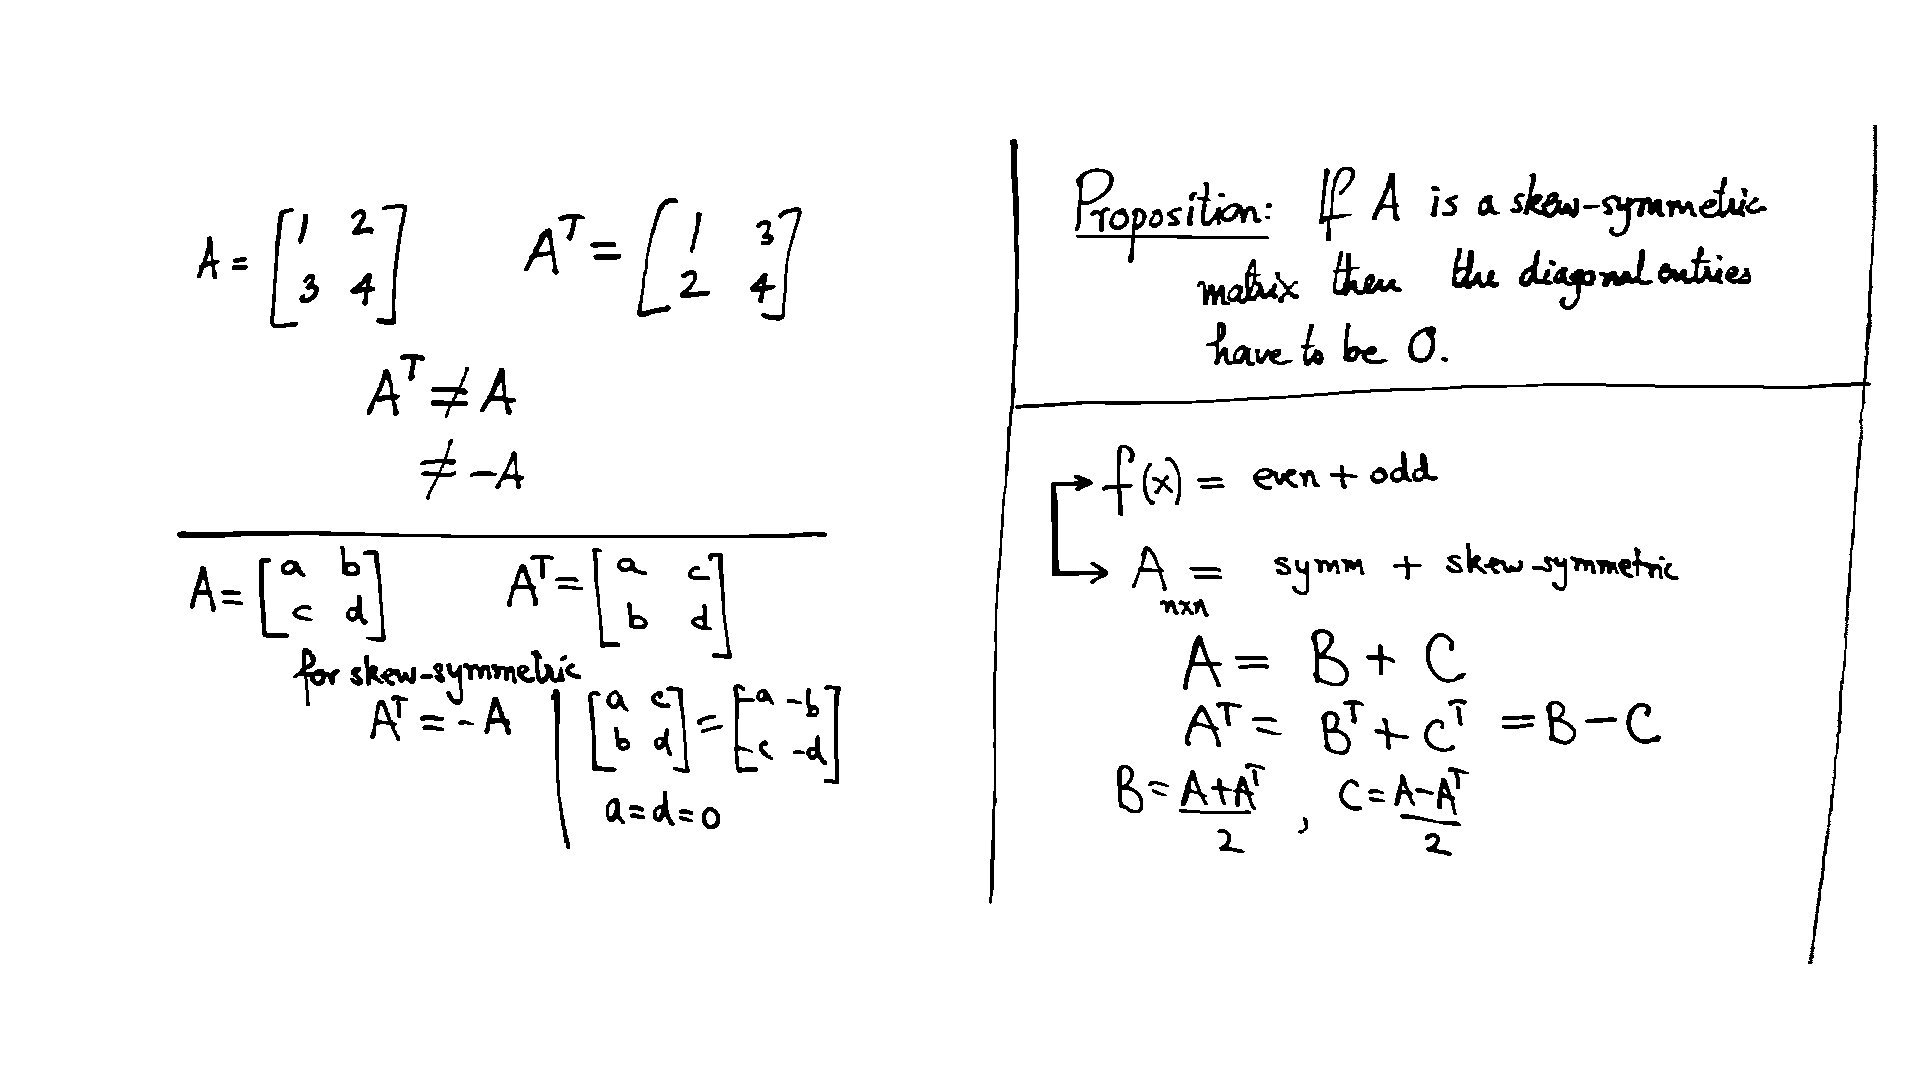 A = [1 2; 3 4]  Aᵀ = [1 3; 2 4]
Aᵀ ≠ A
≠ -A
A = [a b; c d]  Aᵀ = [a c; b d]
for skew-symmetric
Aᵀ = -A
[a c; b d] = [-a -b; -c -d]
a = d = 0
Proposition: If A is a skew-symmetric
matrix then the diagonal entries
have to be 0.
f(x) = even + odd
A = symm + skew-symmetric
n×n
A = B + C
Aᵀ = Bᵀ + Cᵀ = B - C
B = (A+Aᵀ)/2 , C = (A-Aᵀ)/2